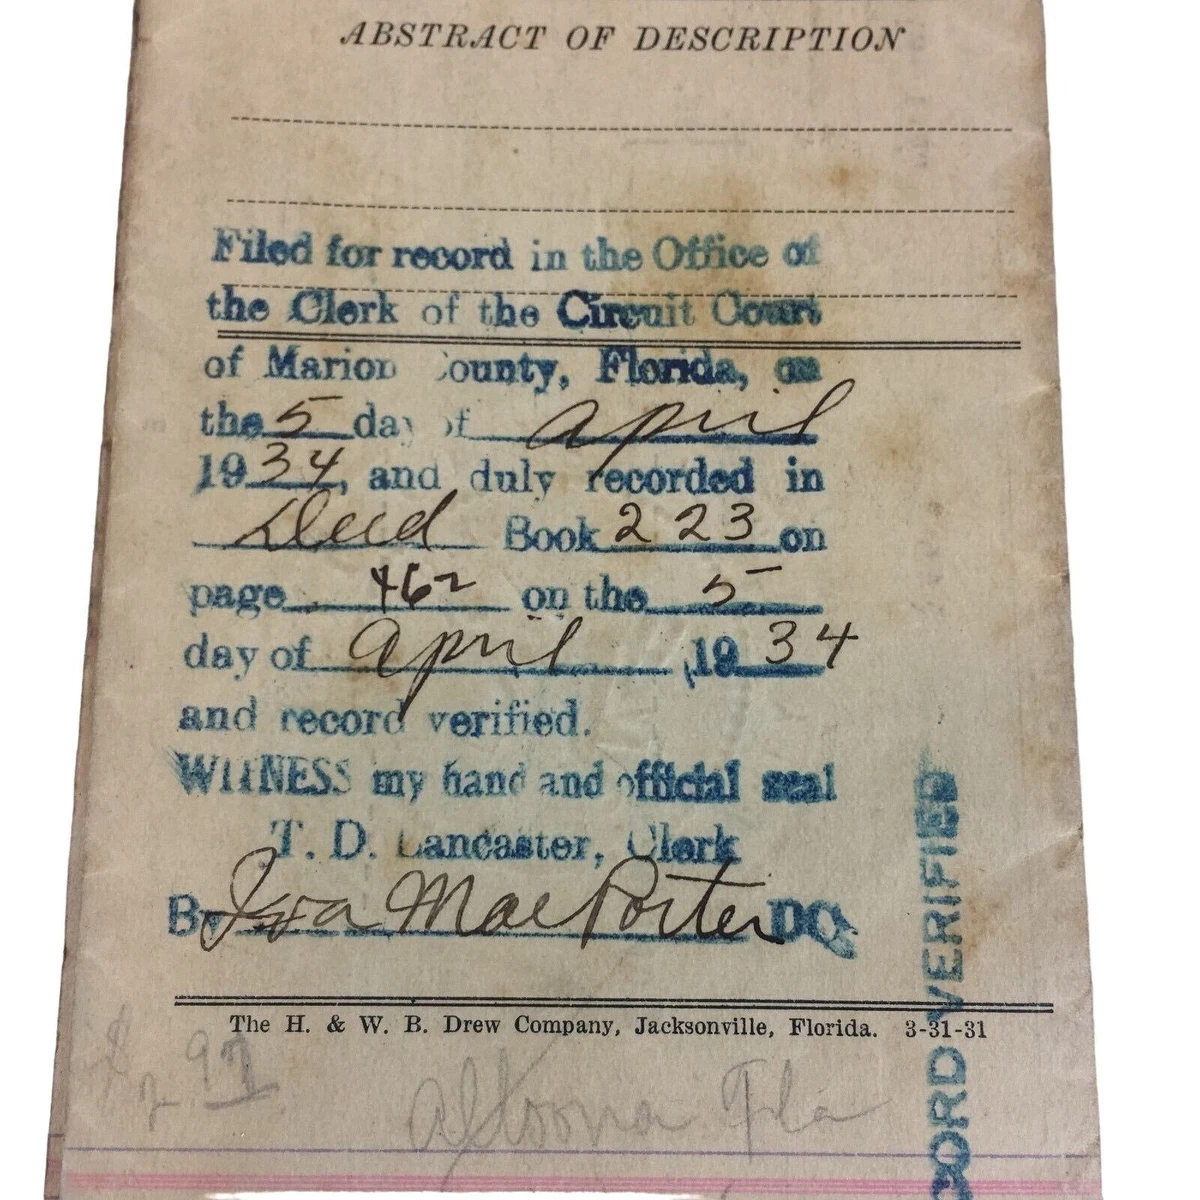 ABSTRACT OF DESCRIPTION
Filed for record in the Office of
the Clerk of the Circuit Court
of Marion County, Florida, on
the 5 day of April
1934, and duly recorded in
Deed Book 223 on
page 462 on the 5
day of April, 1934
and record verified.
WITNESS my hand and official seal
T. D. Lancaster, Clerk
By Iva Mae Porter DC.
The H. & W. B. Drew Company, Jacksonville, Florida. 3-31-31
$2.97
Altoona Fla
ORD VERIFIED